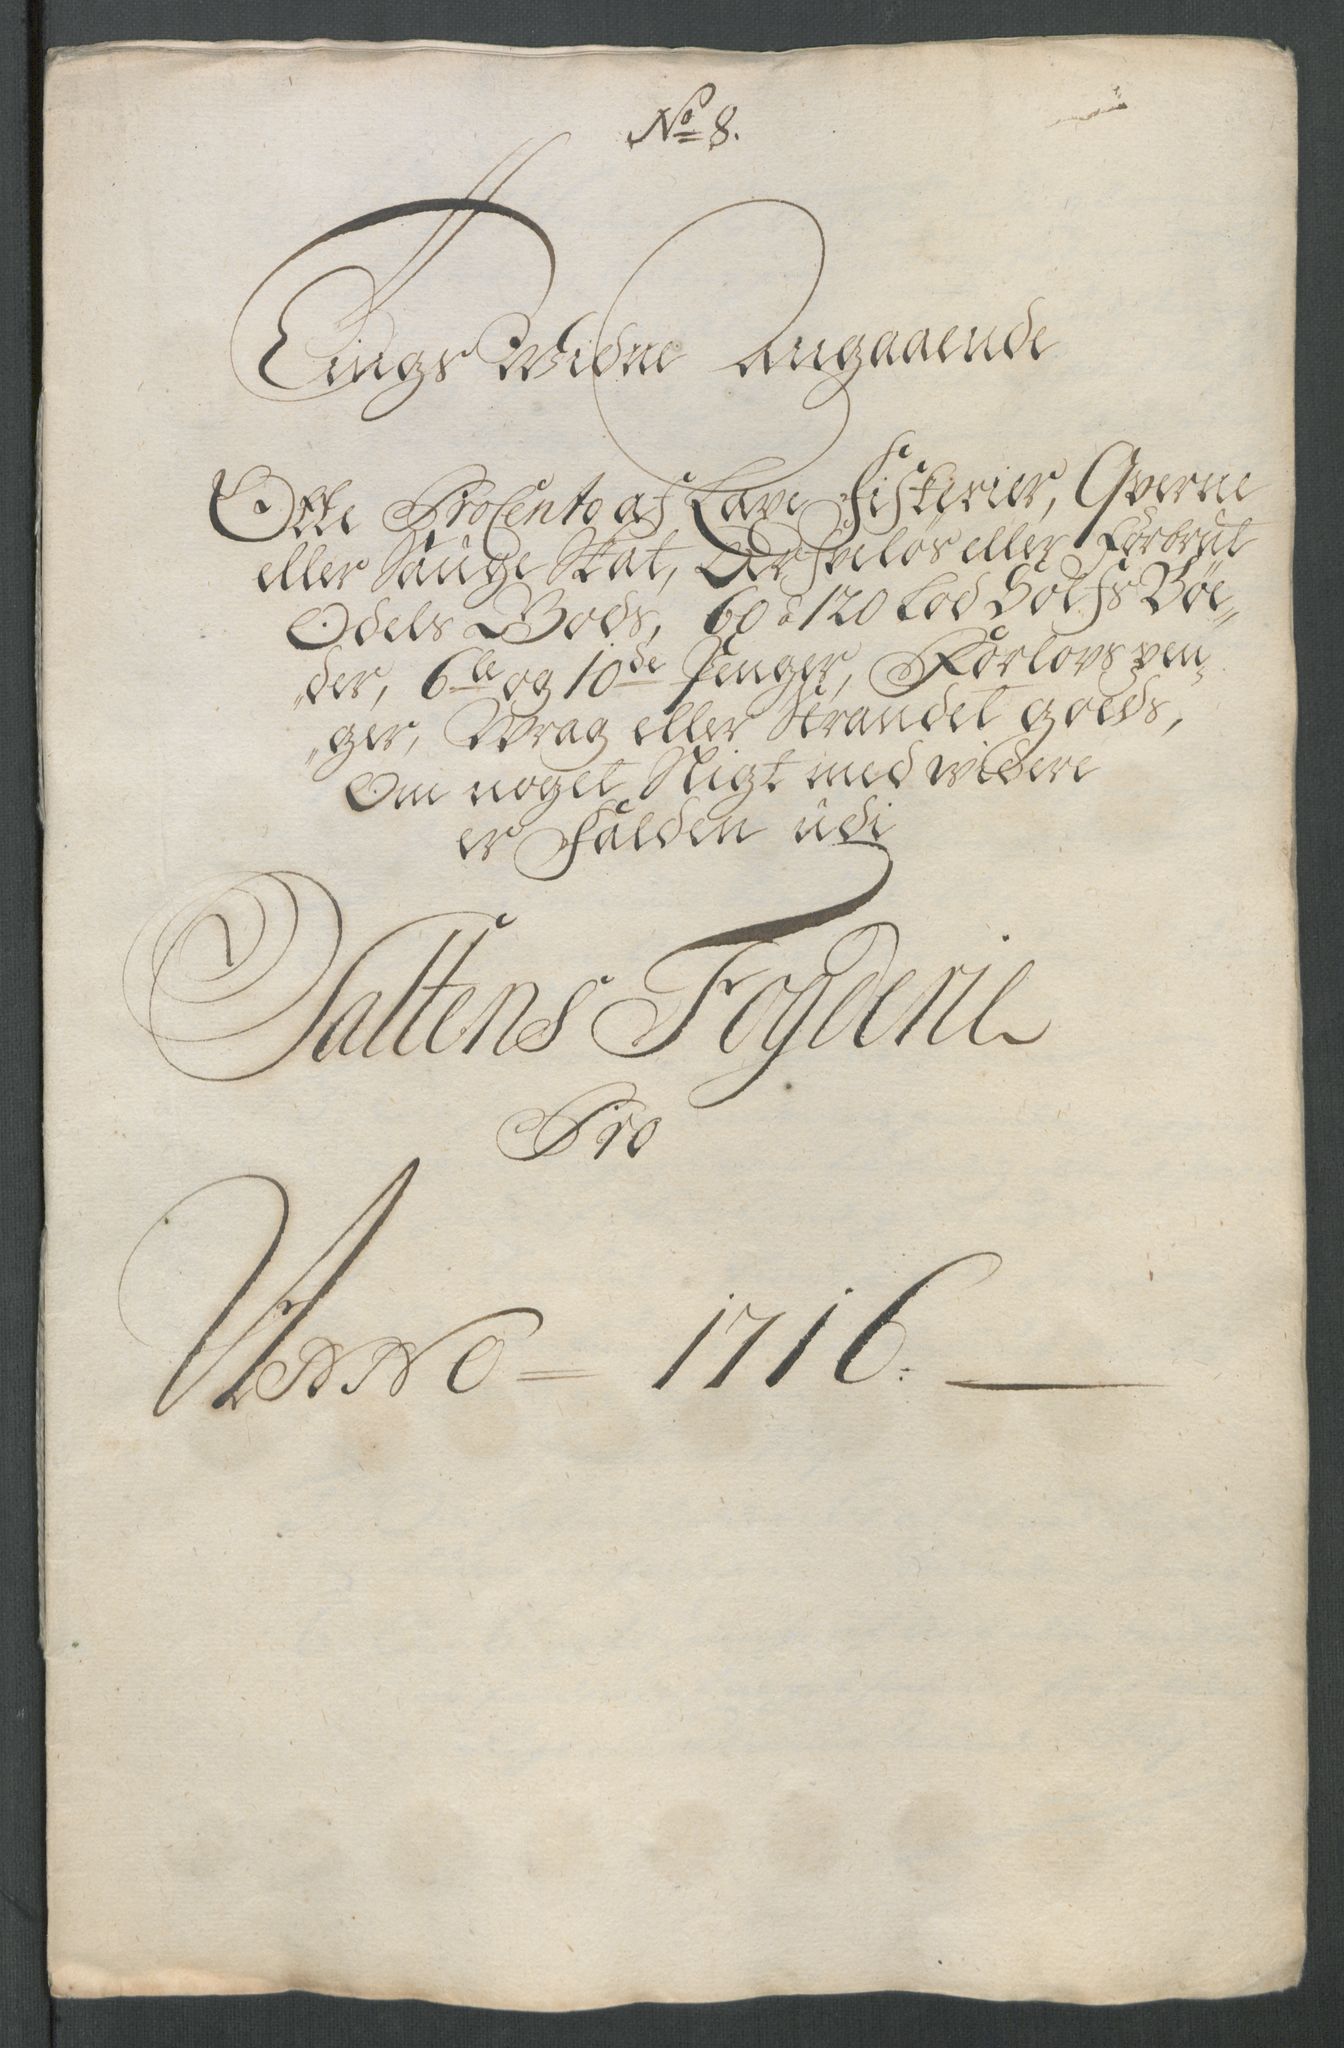 No 8.
Tings Widne Angaaende
Otte ProCento af Lave Fiskerier, Qverne
eller Sauge Skat, Arfveløs eller Forbrut
Odels Gods, 60 a 120 Lod Sølfs Bøe„
„der, 6te og 10de Penger, Forlovs pen„
„ger, Wrag eller Strandet goeds,
Om noget Sligt med widere
er Falden udi
Saltens Fogderie
Pro
Anno = 1716.